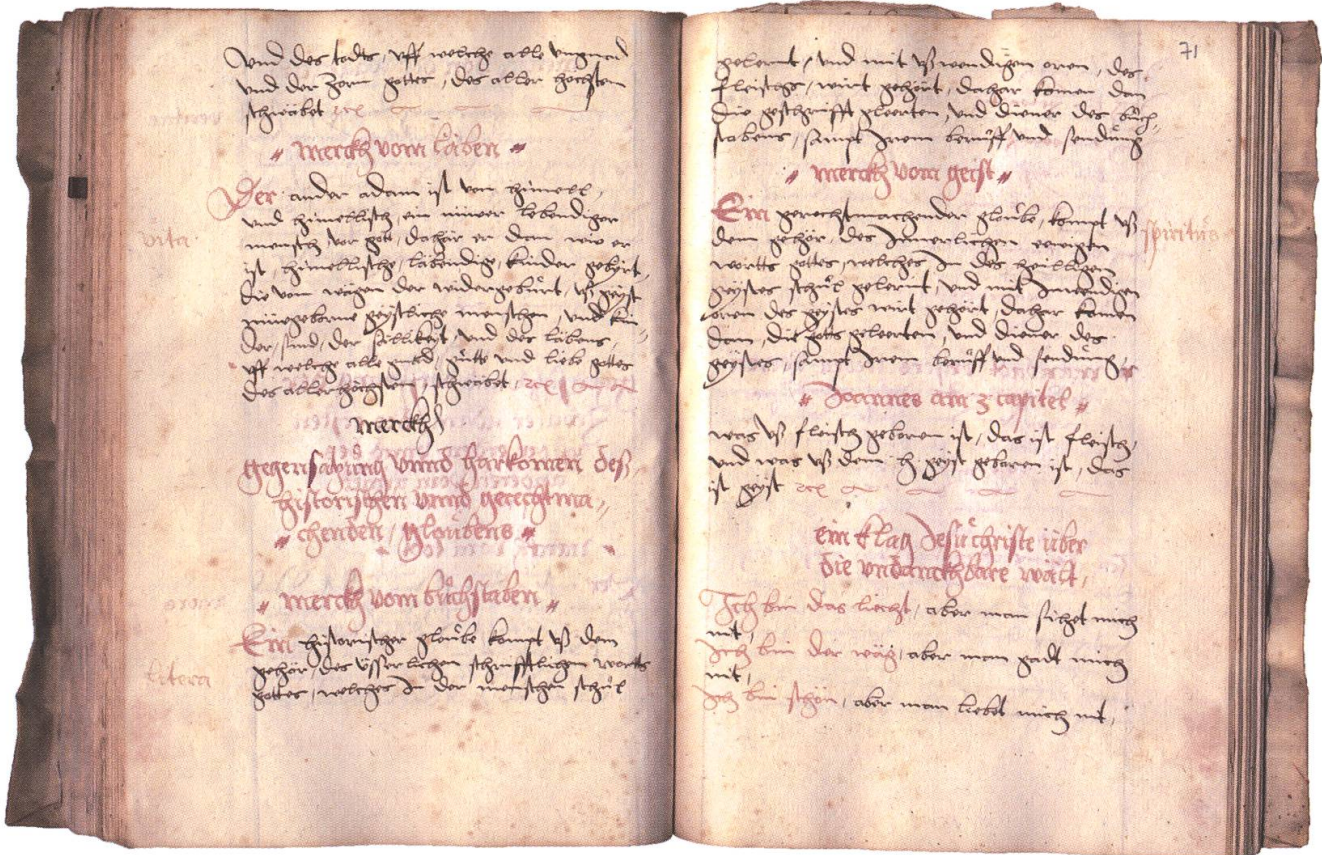 vnd des todts, vff welche alle vngnad
vnd der zorn gottes, des aller hochsten
schwebet
merckh vom läben
Der ander adam ist von himell,
vnd himellisch, ein lebendiger
vita
mensch vor gott, dahar er dan wie er
ist, himellische, läbendig, kinder gebirt,
die von wägen der widergebürt, vß geyst
geystliche menschen, vnd kin-
der, sind, der sälikeyt, vnd des läbens,
vff welche alle gnad, gütte vnd liebe gottes
des allerhöchsten, schwebet,
merckh
gegensatzung vnnd harkomen deß
historischen vnnd gerechtma-
chenden, gloubens
merckh vom buchstaben
Ein historischer gloube kompt vß dem
gehör, des üsserlichen schrifftlichen wortts
litera
gottes, welches in der menschen schul
71
gelernt, vnd mit vßwendigen oren, des
fleischs, wirt gehört, dahar komen dan
die geschrifft gleerten, vnd diener des buch-
stabens, sampt irem beruff vnd sendung
merckh vom geist
Ein gerechtmachender gloube, kompt vß
spiritus
dem gehör, des innerlichen ewigen
wortts gottes, welches in des heilligen
geystes schul gelernt, vnd mit inwendigen
oren des geystes wirt gehört, dahar komen
dan, die gotts geleerten, vnd diener des
geystes, sampt irem beruff vnd sendung,
Joannes am 3 capitel
was vß fleisch geboren ist, das ist fleisch,
vnd was vß dem h geyst geboren ist, das
ist geyst
ein klag Jesu christe über
die vndanckhbare wält,
Ich bin das liecht, aber man sichet mich
nit,
Ich bin der wäg, aber man gadt mich
nit,
Ich bin schön, aber man liebet mich nit,